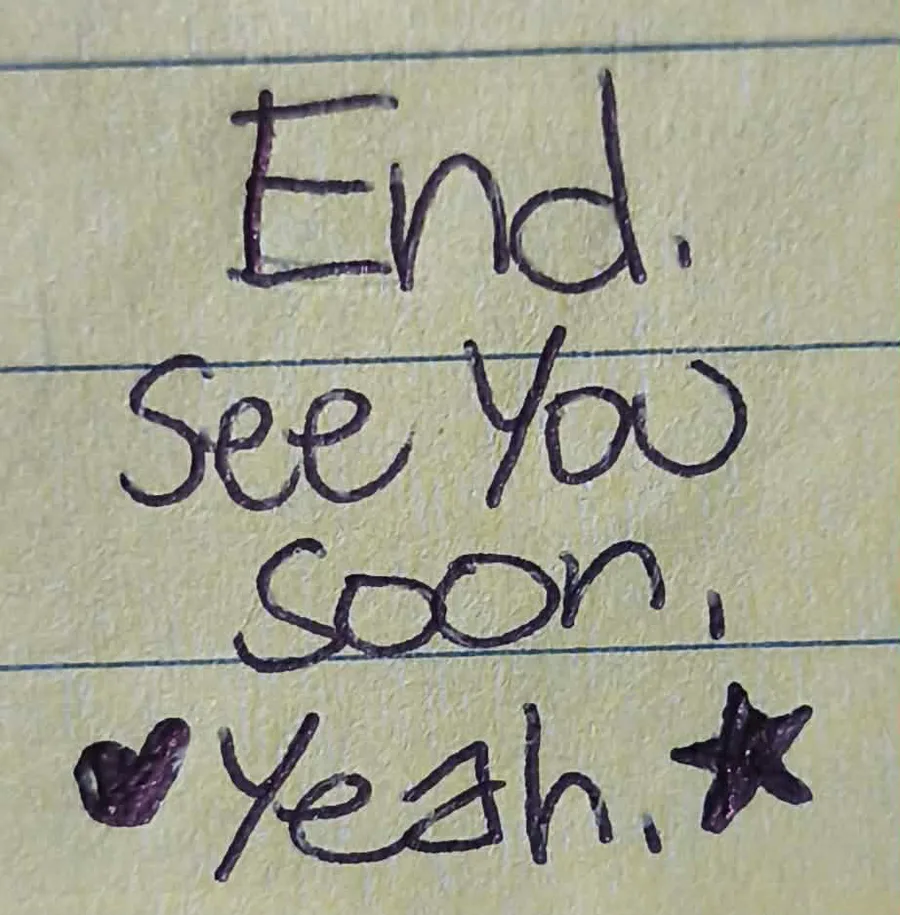 End.
See You
Soon.
♥Yeah.★